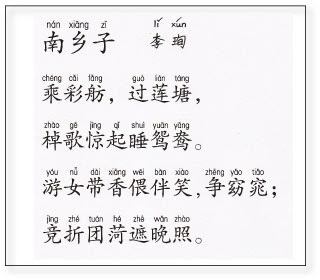 nán xiāng zǐ lǐ xún
南乡子 李珣
chéng cǎi fǎng guò lián táng
乘彩舫，过莲塘，
zhào gē jīng qǐ shuì yuān yāng
棹歌惊起睡鸳鸯。
yóu nǚ dài xiāng wēi bàn xiào zhēng yǎo tiǎo
游女带香偎伴笑，争窈窕；
jìng zhé tuán hé zhē wǎn zhào
竞折团菏遮晚照。